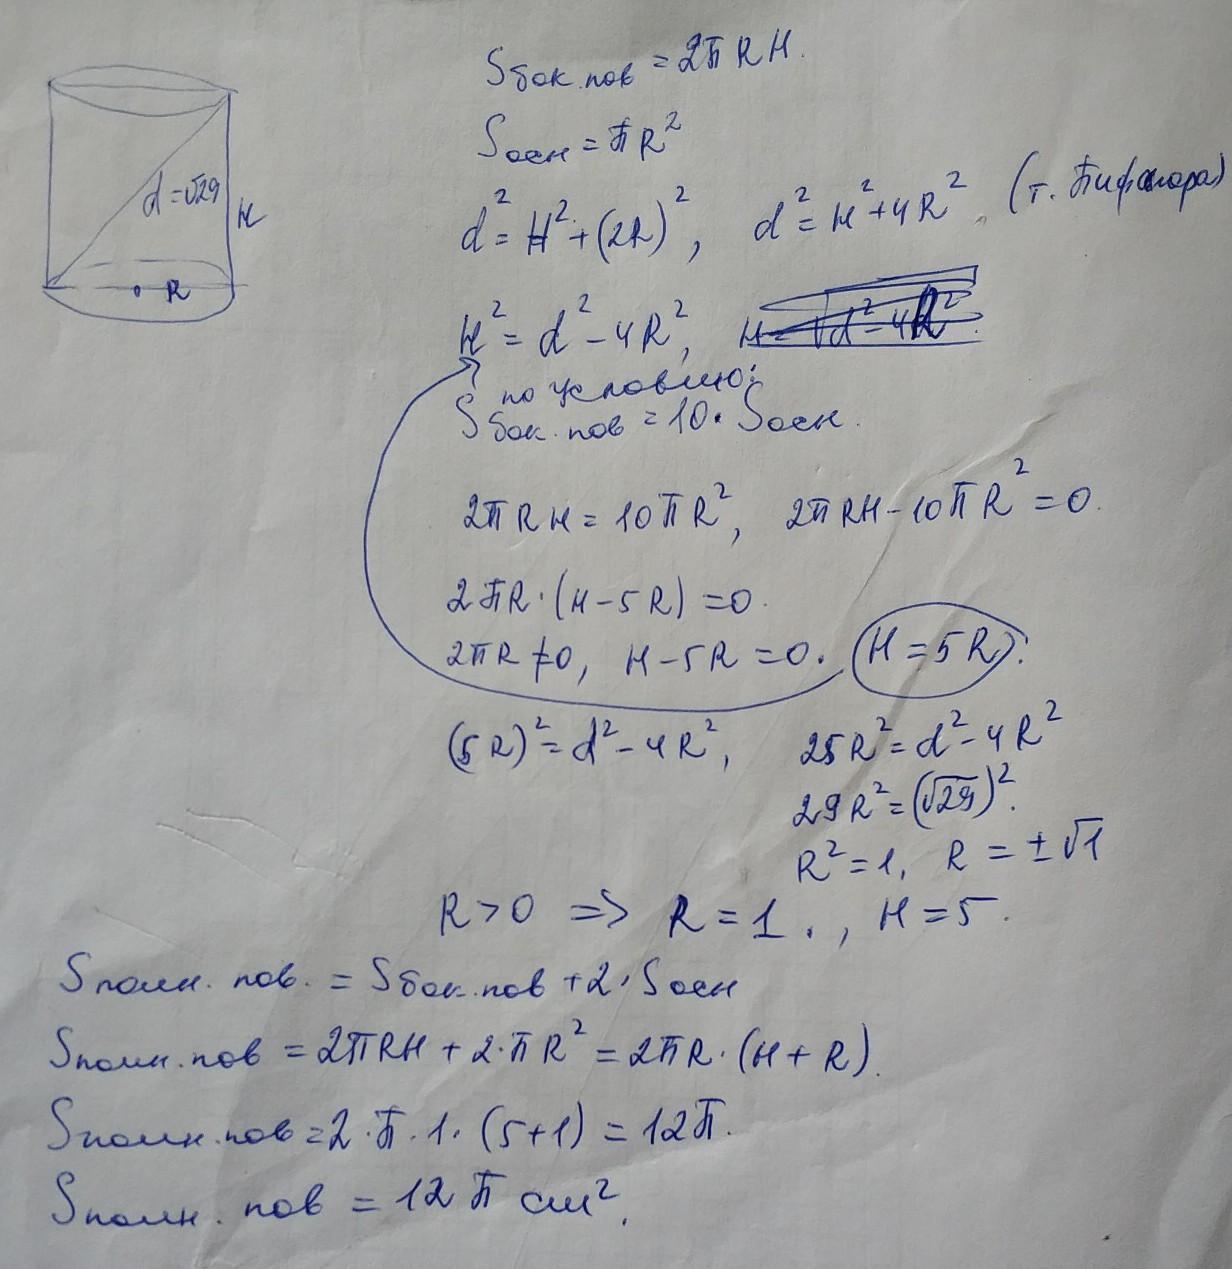 Sбок.пов = 2πRH.
Sосн = πR²
d = √29
H
R
d² = H² + (2R)², d² = H² + 4R². (т. Пифагора)
H² = d² - 4R², H = √d² - 4R².
по условию:
Sбок.пов = 10 · Sосн.
2πRH = 10πR², 2πRH - 10πR² = 0.
2πR · (H - 5R) = 0.
2πR ≠ 0, H - 5R = 0. H = 5R.
(5R)² = d² - 4R², 25R² = d² - 4R²
29R² = (√29)².
R² = 1, R = ±√1
R > 0 => R = 1., H = 5.
Sполн. пов. = Sбок.пов + 2 · Sосн
Sполн.пов = 2πRH + 2·πR² = 2πR · (H + R).
Sполн.пов = 2·π·1·(5+1) = 12π.
Sполн. пов = 12π см².